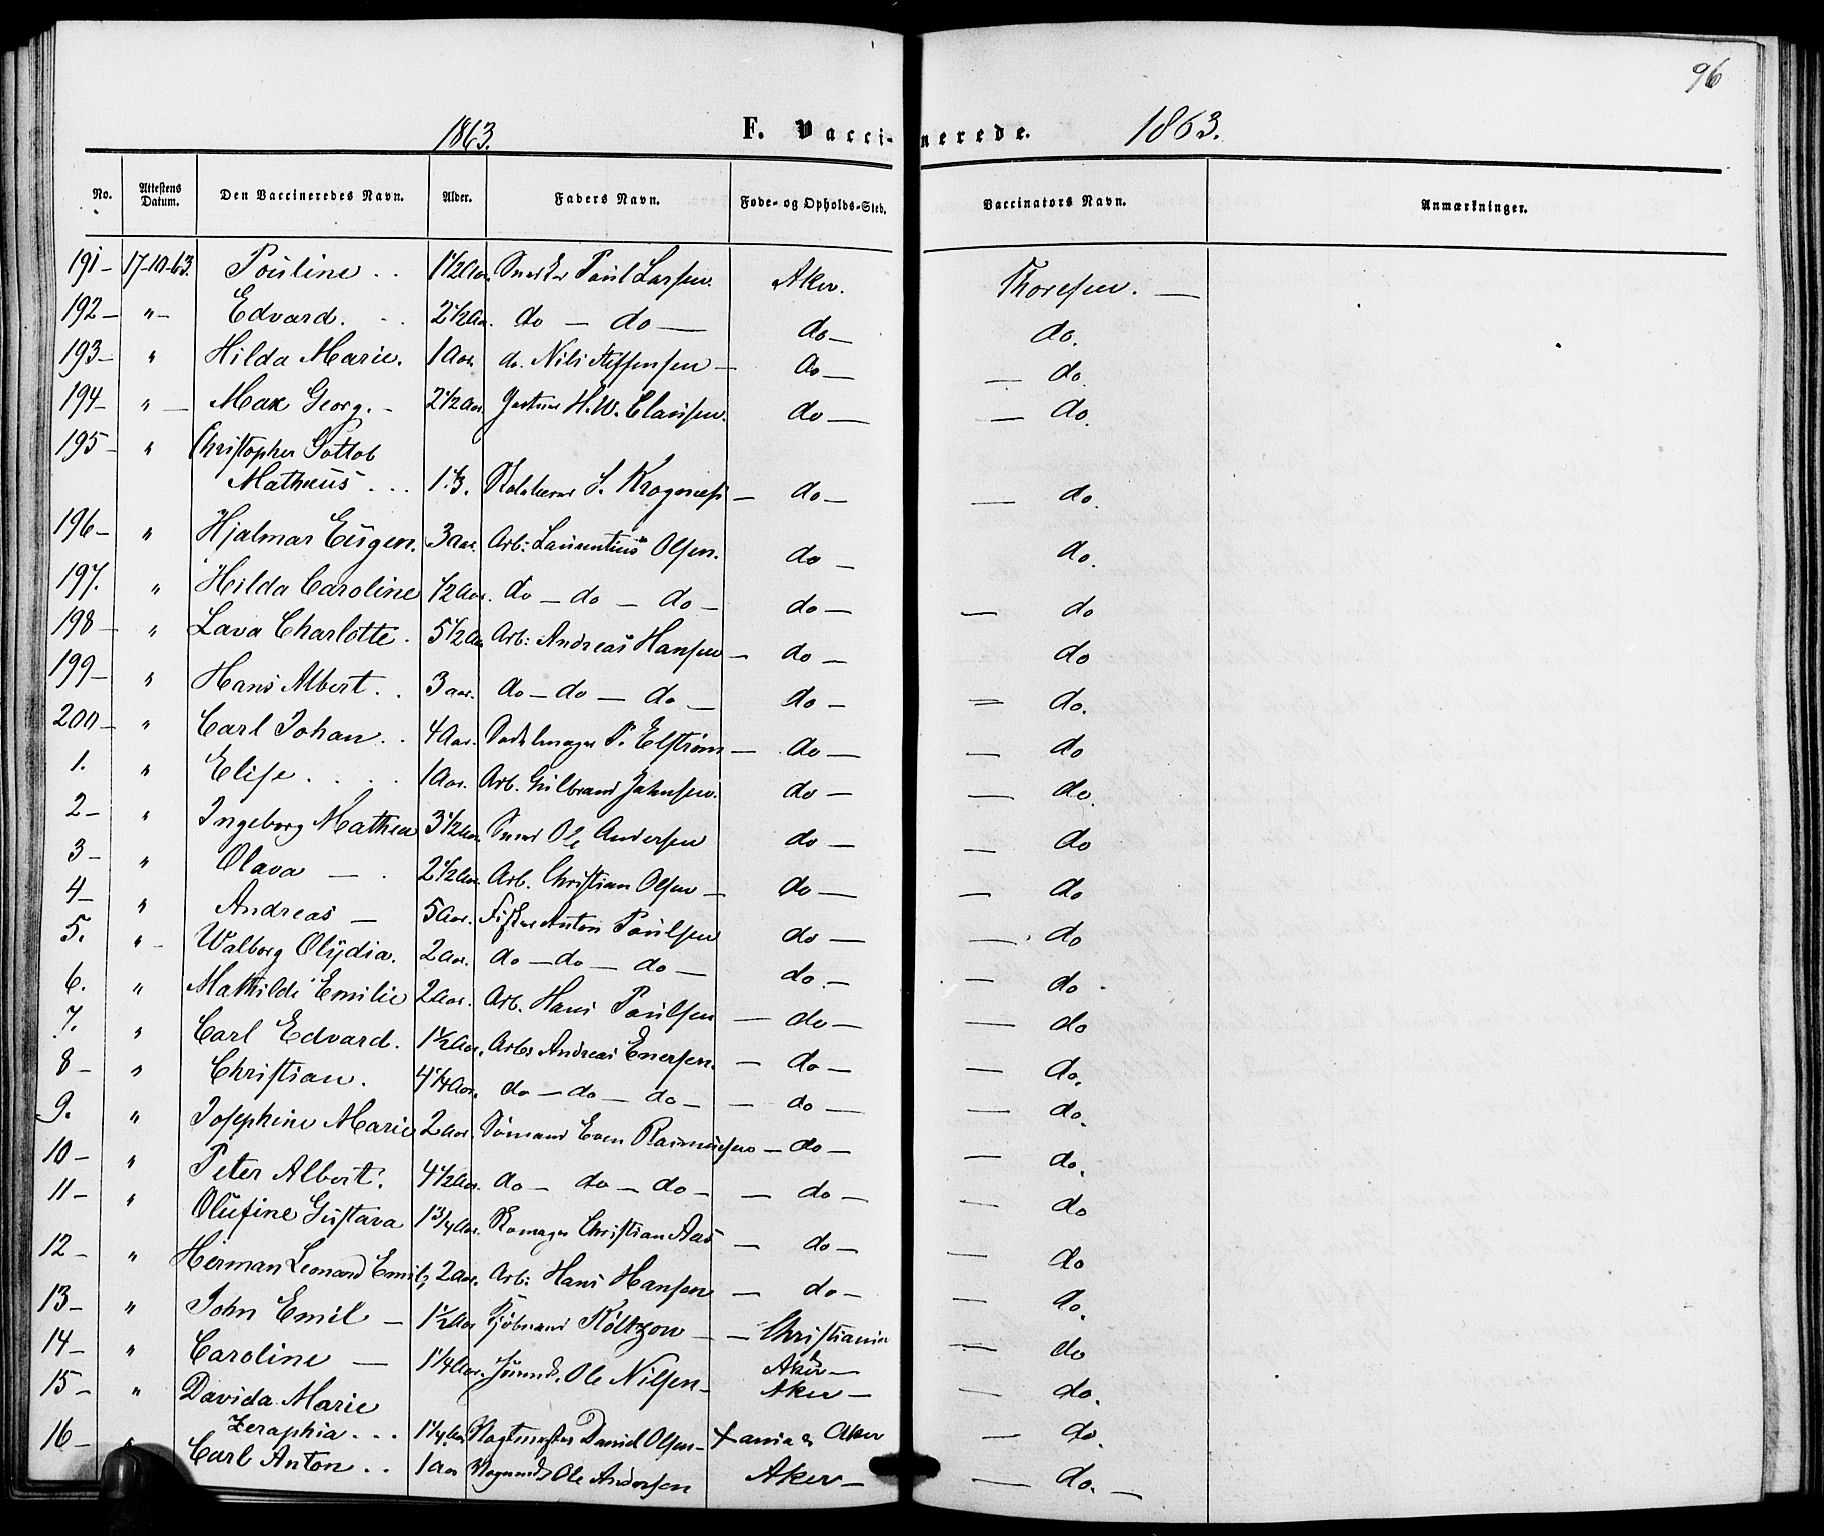 96
1863. F. Vaccinerede. 1863.
No. Attestens Datum. Den Vaccineredes Navn. Alder. Faders Navn. Føde- og Opholds-Sted. Vaccinators Navn. Anmærkninger.
191- 17-10-63. Pouline . . 1 1/2 Aar. Snedker Poul Larsen. Aker. Thoresen. —
192- "- Edvard. . . 2 1/2 Aar. do — do — do — do.
193- " Hilda Marie. 1 Aar. do. Nils Steffensen — do — — do.
194- " — Max Georg. - 2 1/2 Aar. Gartner H. W. Clausen. do — — do.
195- " Christopher Gottob
Matheus . . . 1 1/3. S. Krogness — do — — do.
196- " Hjalmar Eugen. 3 aar. Arb: Laurentius Olsen. do — do.
197. " Hilda Caroline 1/2 Aar. do — do — do — do — — do
198- " Lava Charlotte. 5 1/2 Aar. Arb: Andreas Hansen — do — do
199- " Hans Albert. . 3 aar. do — do — do — do — — do.
200- " Carl Johan . . 4 Aar. Sadelmager P. Elstrøm — do — — do
1. " Elise . . . . 1 Aar. Arb. Gulbrand Johnsen. do — — do.
2- " Ingeborg Mathea 3 1/2 Aar. Ole Andersen do — — do
3- " Olava — . 2 1/2 Aar. Arb. Christian Olsen — do — — do
4- " Andreas — 5 Aar. Fisker Anton Poulsen do — — do
5. "- Walborg Olydia. 2 Aar. do — do — do — do. — — do
6. " Mathilde Emilie 2 Aar. Arb. Hans Poulsen — do — — do
7. " Carl Edvard. 1 1/2 Aar. Arb: Andreas Enersen. — do — — do.
8- " Christian. 4 1/4 Aar. do — do — do — — do — — do.
9. " Josephine Marie 2 Aar. Sømand Even Rasmussen — do — — do.
10- " Peter Albert. 4 1/2 Aar. do — do — do — — do — — do
11- " Olufine Gustava 1 3/4 Aar. Skomager Christian Aas — do — — do
12- " Herman Leonard Emil, 2 Aar. Arb: Hans Hansen — do — — do.
13- " John Emil — 1 1/2 Aar Kjøbmand Költzow — — Christiania — do
14- " Caroline — 1 1/4 Aar. Ole Nilsen — Aker — — do.
15- " Davida Marie Aker —
Zeraphia . . . 1 1/4 Aar Daniel Olsen — Xania & Aker — do.
16- " Carl Anton . . 1 Aar Ole Andersen Aker — — do. —